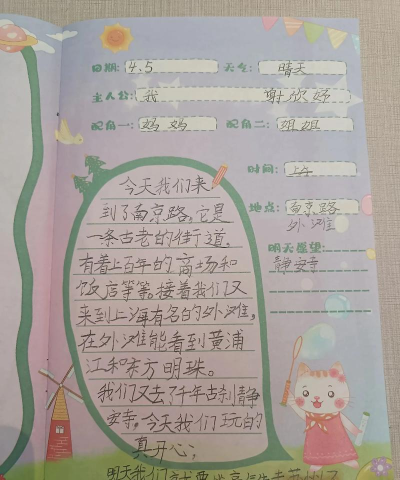 日期: 4.5 天气: 晴天
主人公: 我 谢欣妤
配角一: 妈妈 配角二: 姐姐
时间: 上午
地点: 南京路
外滩
明天愿望:
静安寺
今天我们来
到了南京路,它是
一条古老的街道,
有着上百年的商场和
饭店等等。接着我们又
来到上海有名的外滩,
在外滩能看到黄浦
江和东方明珠。
我们又去了千年古刹静
安寺,今天我们玩的
真开心;
明天我们就要坐高铁去苏州了